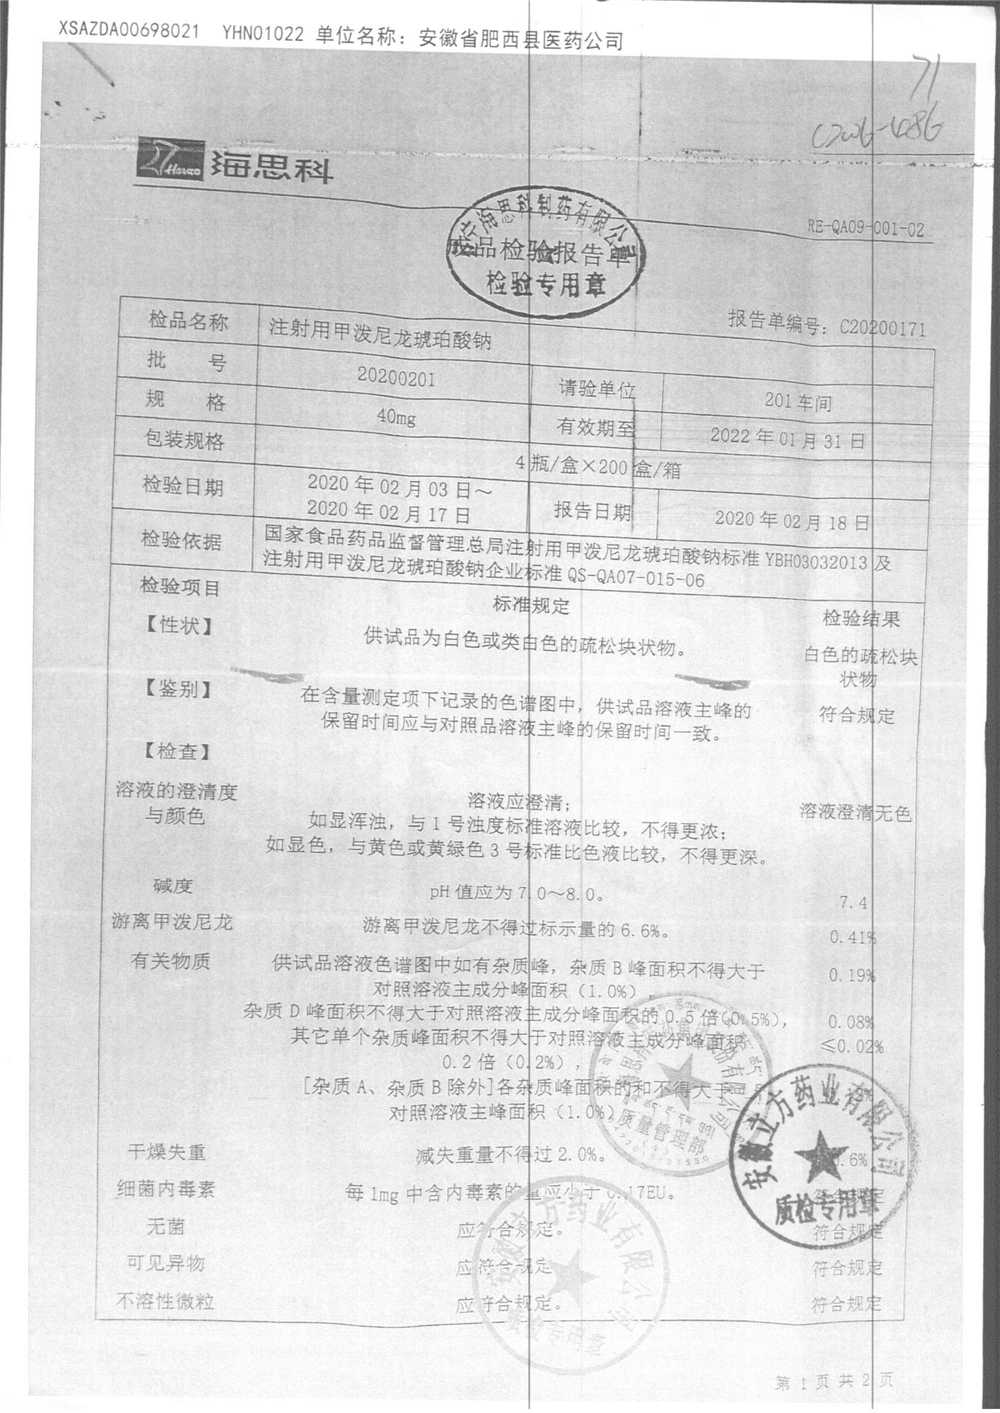 XSAZDA00698021 YHN01022 单位名称：安徽省肥西县医药公司
71
海思科
RE-QA09-001-02
海思科制药有限公司
成品检验报告单
检验专用章
报告单编号：C20200171
检品名称 注射用甲泼尼龙琥珀酸钠
批 号 20200201 请验单位 201车间
规 格 40mg 有效期至 2022年01月31日
包装规格 4瓶/盒×200盒/箱
检验日期 2020年02月03日～
2020年02月17日 报告日期 2020年02月18日
检验依据 国家食品药品监督管理总局注射用甲泼尼龙琥珀酸钠标准YBH03032013及
注射用甲泼尼龙琥珀酸钠企业标准QS-QA07-015-06
检验项目 标准规定 检验结果
【性状】 供试品为白色或类白色的疏松块状物。 白色的疏松块
状物
【鉴别】 在含量测定项下记录的色谱图中，供试品溶液主峰的
保留时间应与对照品溶液主峰的保留时间一致。 符合规定
【检查】
溶液的澄清度
与颜色 溶液应澄清； 溶液澄清无色
如显浑浊，与1号浊度标准溶液比较，不得更浓；
如显色，与黄色或黄绿色3号标准比色液比较，不得更深。
碱度 pH值应为7.0～8.0。 7.4
游离甲泼尼龙 游离甲泼尼龙不得过标示量的6.6%。 0.41%
有关物质 供试品溶液色谱图中如有杂质峰，杂质B峰面积不得大于 0.19%
对照溶液主成分峰面积（1.0%），
杂质D峰面积不得大于对照溶液主成分峰面积的0.5倍(0.5%)， 0.08%
其它单个杂质峰面积不得大于对照溶液主成分峰面积 ≤0.02%
0.2倍（0.2%），
[杂质A、杂质B除外]各杂质峰面积的和不得大于
对照溶液主峰面积（1.0%）
质量管理部
干燥失重 减失重量不得过2.0%。 .6%
细菌内毒素 每1mg中含内毒素的量应小于0.17EU。 符合规定
无菌 应符合规定。 符合规定
可见异物 应符合规定 符合规定
不溶性微粒 应符合规定。 符合规定
安徽立方药业有限公司
质检专用章
安徽立方药业有限公司
质检专用章
第1页共2页